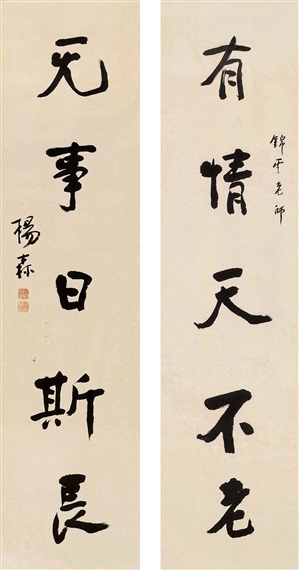 有情天不老
錦雲老師
无事日斯長
楊森